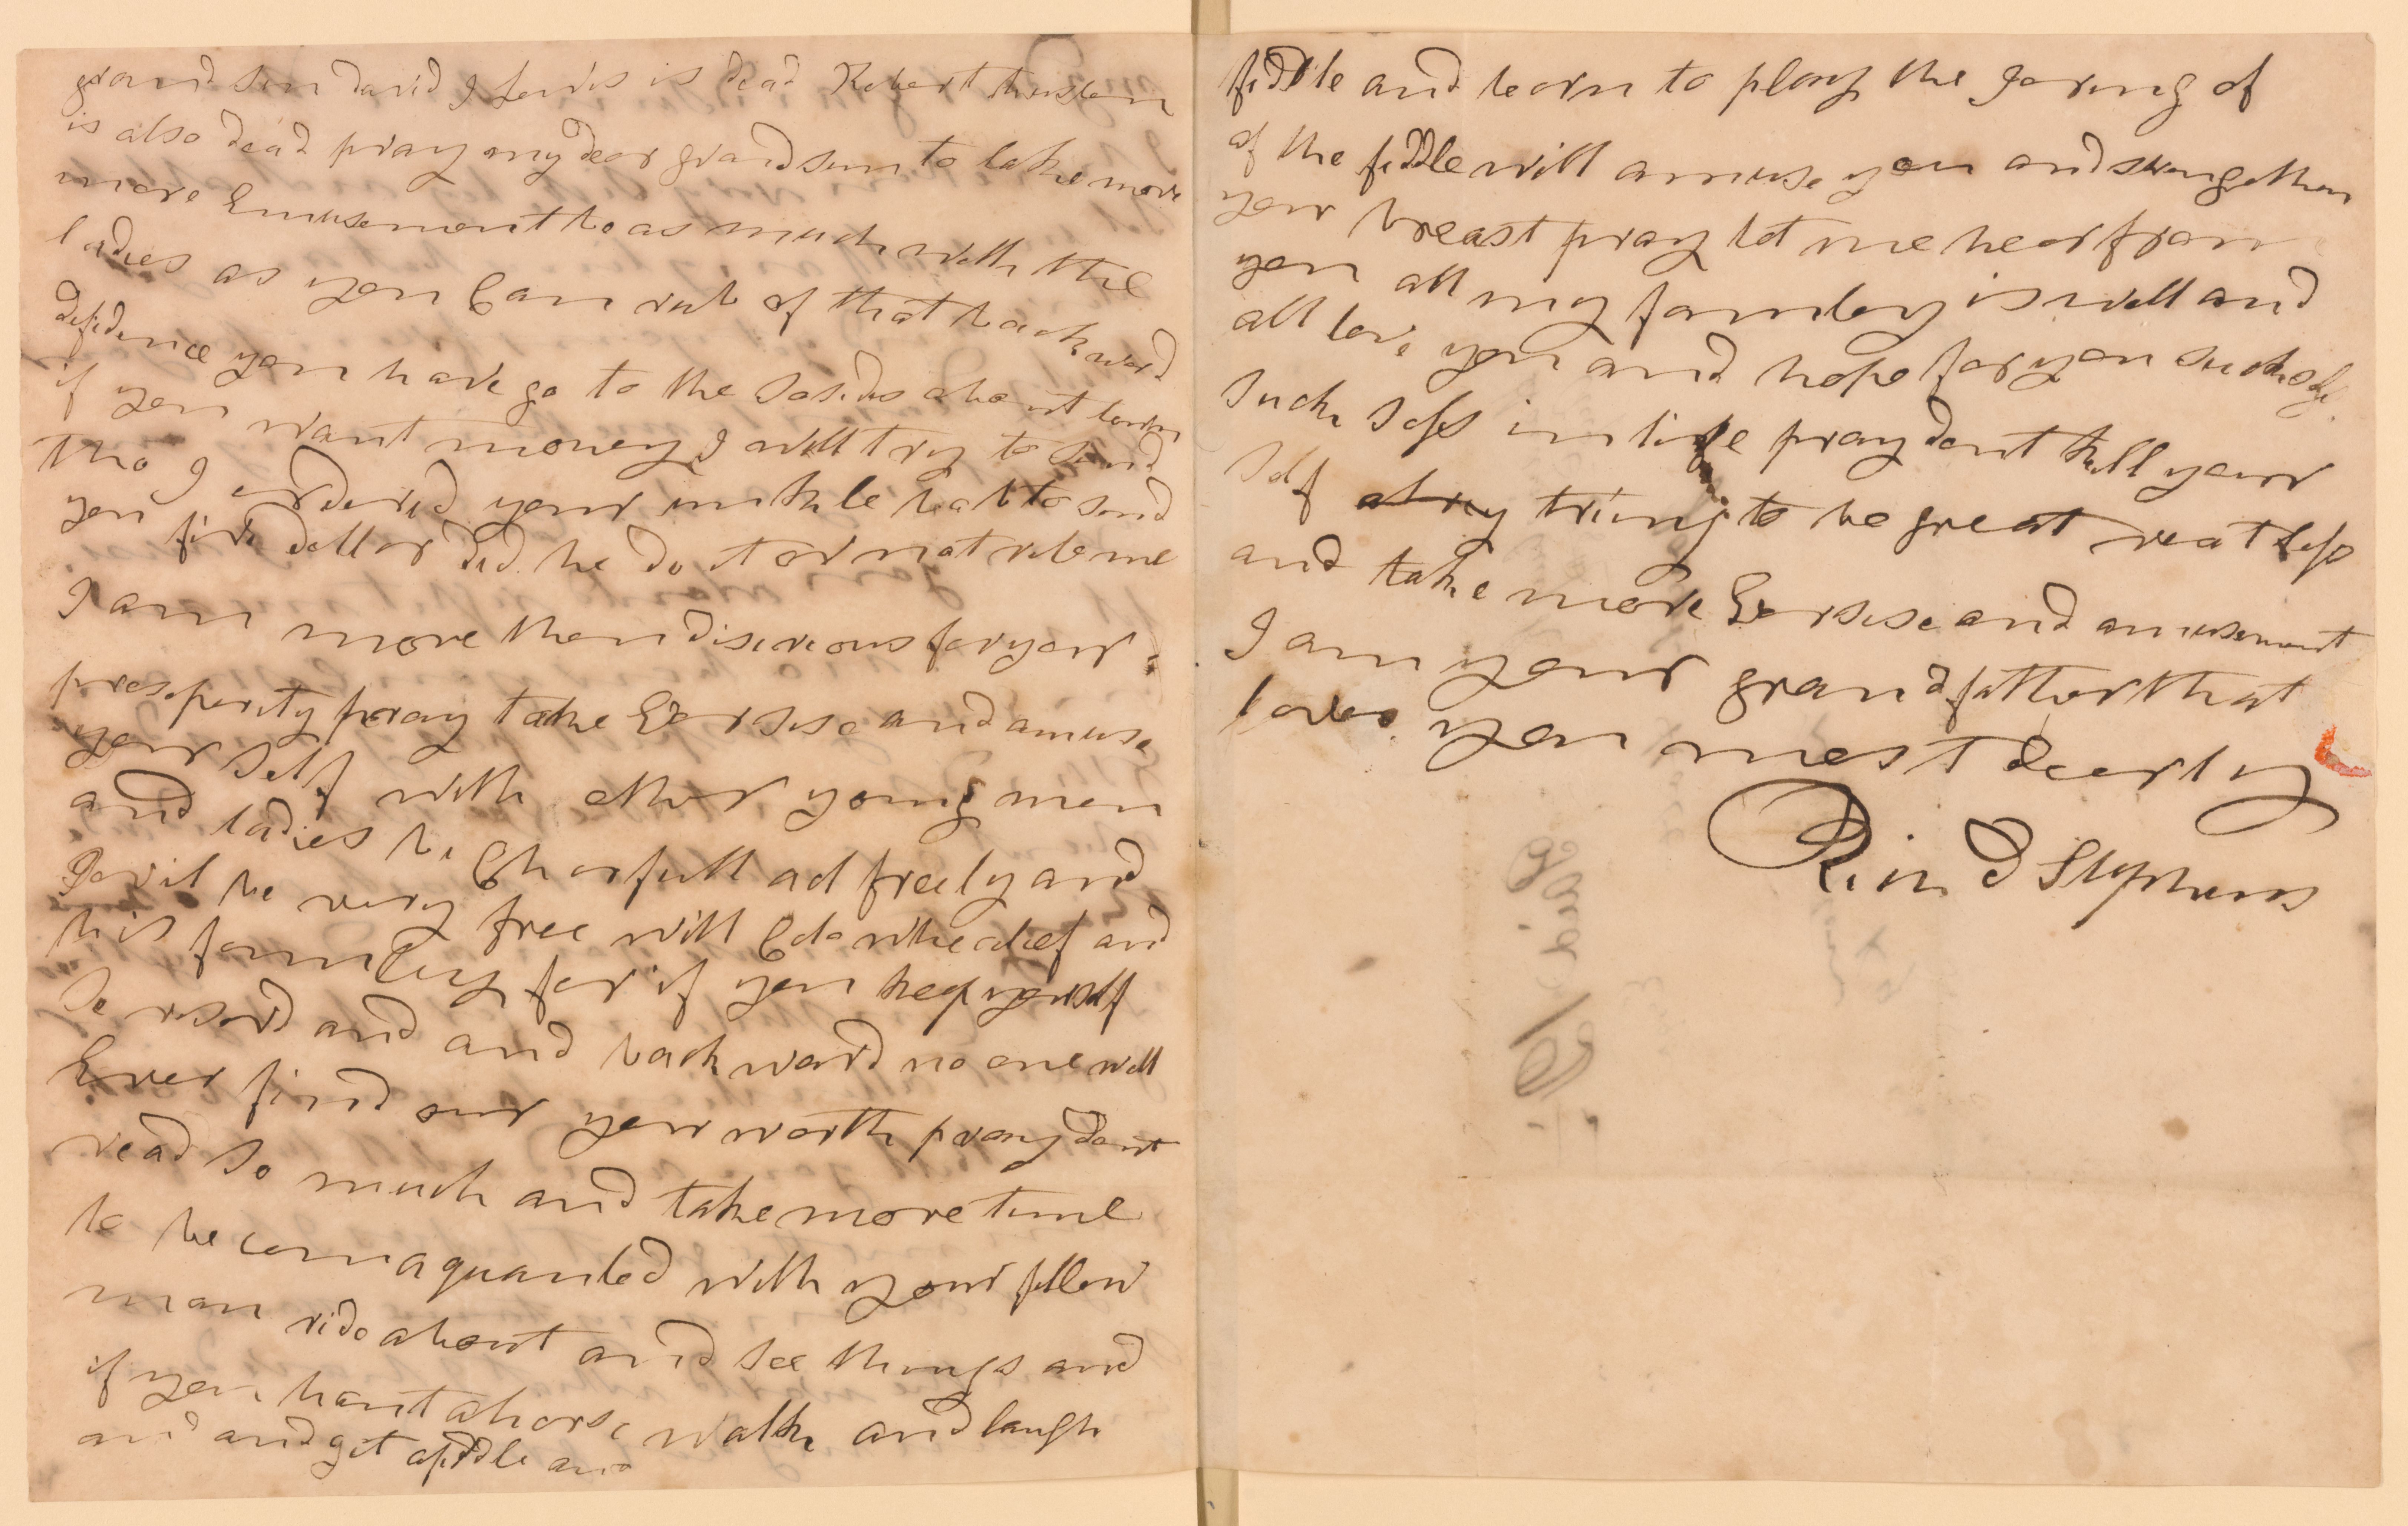 grand son david J Lewis is dead Robert
is also dead pray my dear grandsun to take more
more Emusement be as much with the
ladies as you Can rub of that back ward
difidence you have go to the about
if you want money I will try to send
tho I ordered your unkle to send
you five dollar did he do it or not rite me
I am more then disirious for your
prosperity pray take Exersise and amuse
your self with other young men
and ladies be Chearfull act freely and
Sevil be very free with and
his famley for if you keep yourself
so resevd and and back ward no one will
Ever find our your worth pray dont
read so much and take more time
to be com aquanted with your fellow
man ride about and see things and
if you hant a horse walk and laugh
and and git a fiddle and
fiddle and learn to play the Jaring of
of the fiddle will amuse you and strengthen
your breast pray let me hear from
you all my famley is well and
all love you and hope for you
such in life pray dont kill your
self triing to be great reat less
and take more Exersise and amusement
I am your grandfather that
loves you most dearly
Rind Stephens